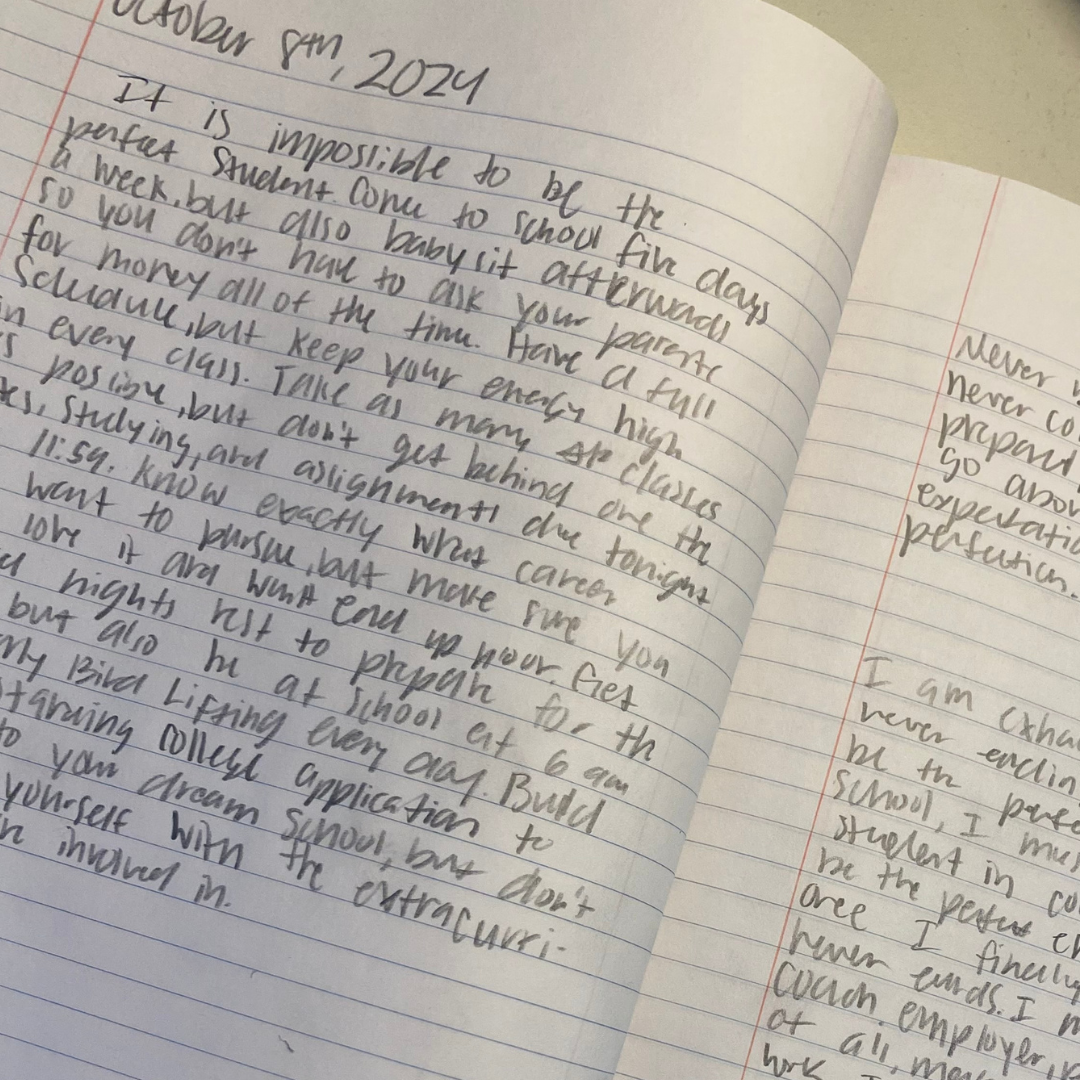 October 8th, 2024
It is impossible to be the
perfect student. Come to school five days
a week, but also babysit afterwards
so you don't have to ask your parents
for money all of the time. Have a full
schedule, but keep your energy high
in every class. Take as many classes
as possible, but don't get behind one the
studying, and assignments due tonight
11:59. Know exactly what career
want to pursue, but make sure you
love it and won't end up poor. Get
nights rest to prepare for the
but also be at school at 6 am
Early Bird Lifting every day. Build
college application to
to your dream school, but don't
yourself with the extracurri-
involved in.
Never
never
prepared
go above
perfection.
I am
never
be the
school, I must
student in
be the perfect
once I finally
never ends. I
coach, employer,
at all,
work